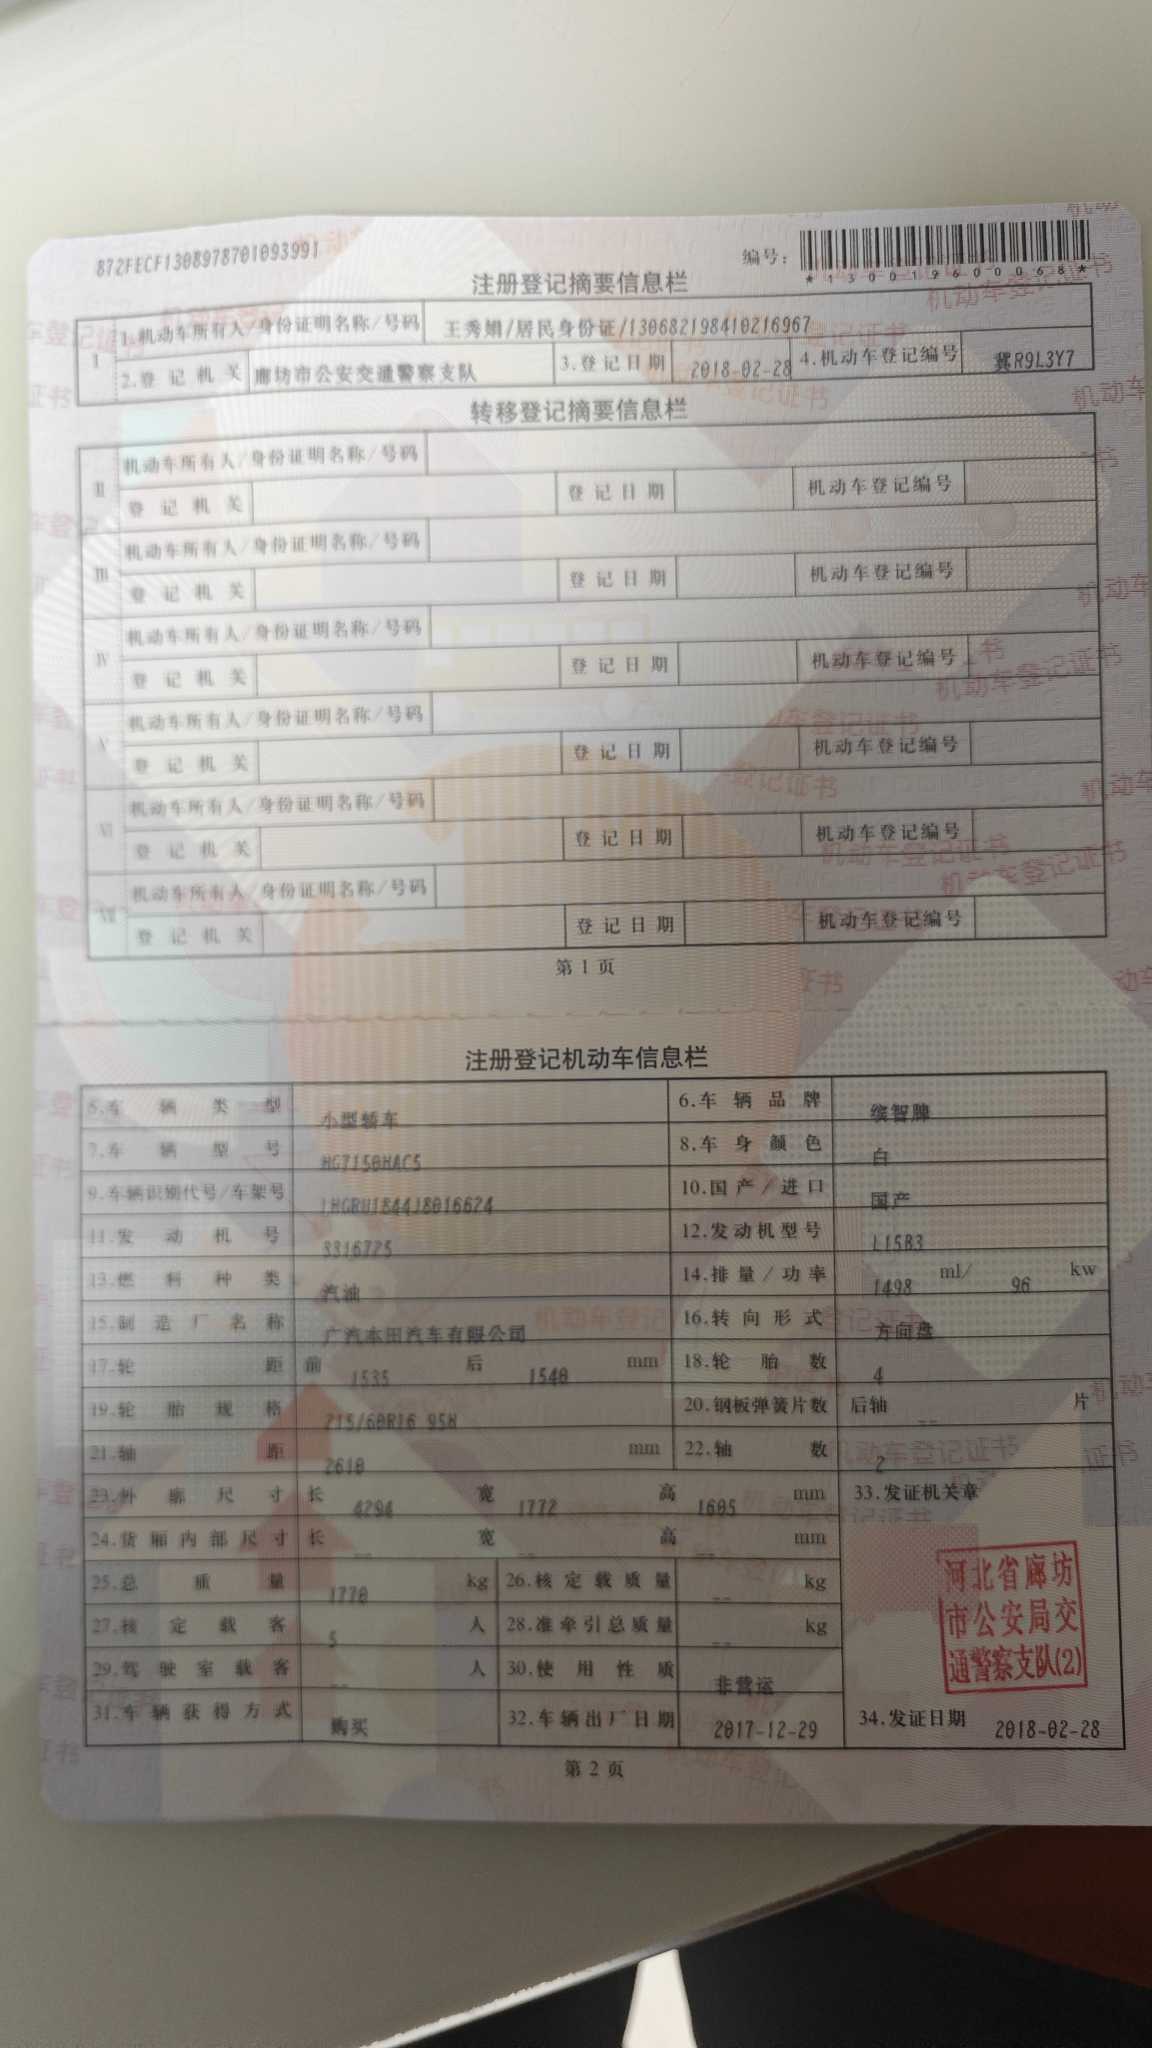 872FECF1308978701093991
编号：
*130019600068*
注册登记摘要信息栏
I 1.机动车所有人/身份证明名称/号码 王秀娟/居民身份证/130682198410216967
2.登记机关 廊坊市公安交通警察支队 3.登记日期 2018-02-28 4.机动车登记编号 冀R9L3Y7
转移登记摘要信息栏
II 机动车所有人/身份证明名称/号码
登记机关 登记日期 机动车登记编号
III 机动车所有人/身份证明名称/号码
登记机关 登记日期 机动车登记编号
IV 机动车所有人/身份证明名称/号码
登记机关 登记日期 机动车登记编号
V 机动车所有人/身份证明名称/号码
登记机关 登记日期 机动车登记编号
VI 机动车所有人/身份证明名称/号码
登记机关 登记日期 机动车登记编号
VII 机动车所有人/身份证明名称/号码
登记机关 登记日期 机动车登记编号
第 1 页
注册登记机动车信息栏
5.车辆类型 小型轿车 6.车辆品牌 缤智牌
7.车辆型号 HG7150HAC5 8.车身颜色 白
9.车辆识别代号/车架号 LHGRU184418016624 10.国产/进口 国产
11.发动机号 3316775 12.发动机型号 L15B3
13.燃料种类 汽油 14.排量/功率 1498 ml/ 96 kw
15.制造厂名称 广汽本田汽车有限公司 16.转向形式 方向盘
17.轮距 前 1535 后 1540 mm 18.轮胎数 4
19.轮胎规格 215/60R16 95H 20.钢板弹簧片数 后轴 -- 片
21.轴距 2610 mm 22.轴数 2
23.外廓尺寸 长 4294 宽 1772 高 1605 mm 33.发证机关章
24.货厢内部尺寸 长 -- 宽 -- 高 -- mm
25.总质量 1770 kg 26.核定载质量 -- kg
27.核定载客 5 人 28.准牵引总质量 -- kg
29.驾驶室载客 -- 人 30.使用性质 非营运
31.车辆获得方式 购买 32.车辆出厂日期 2017-12-29 34.发证日期 2018-02-28
河北省廊坊
市公安局交
通警察支队(2)
第 2 页